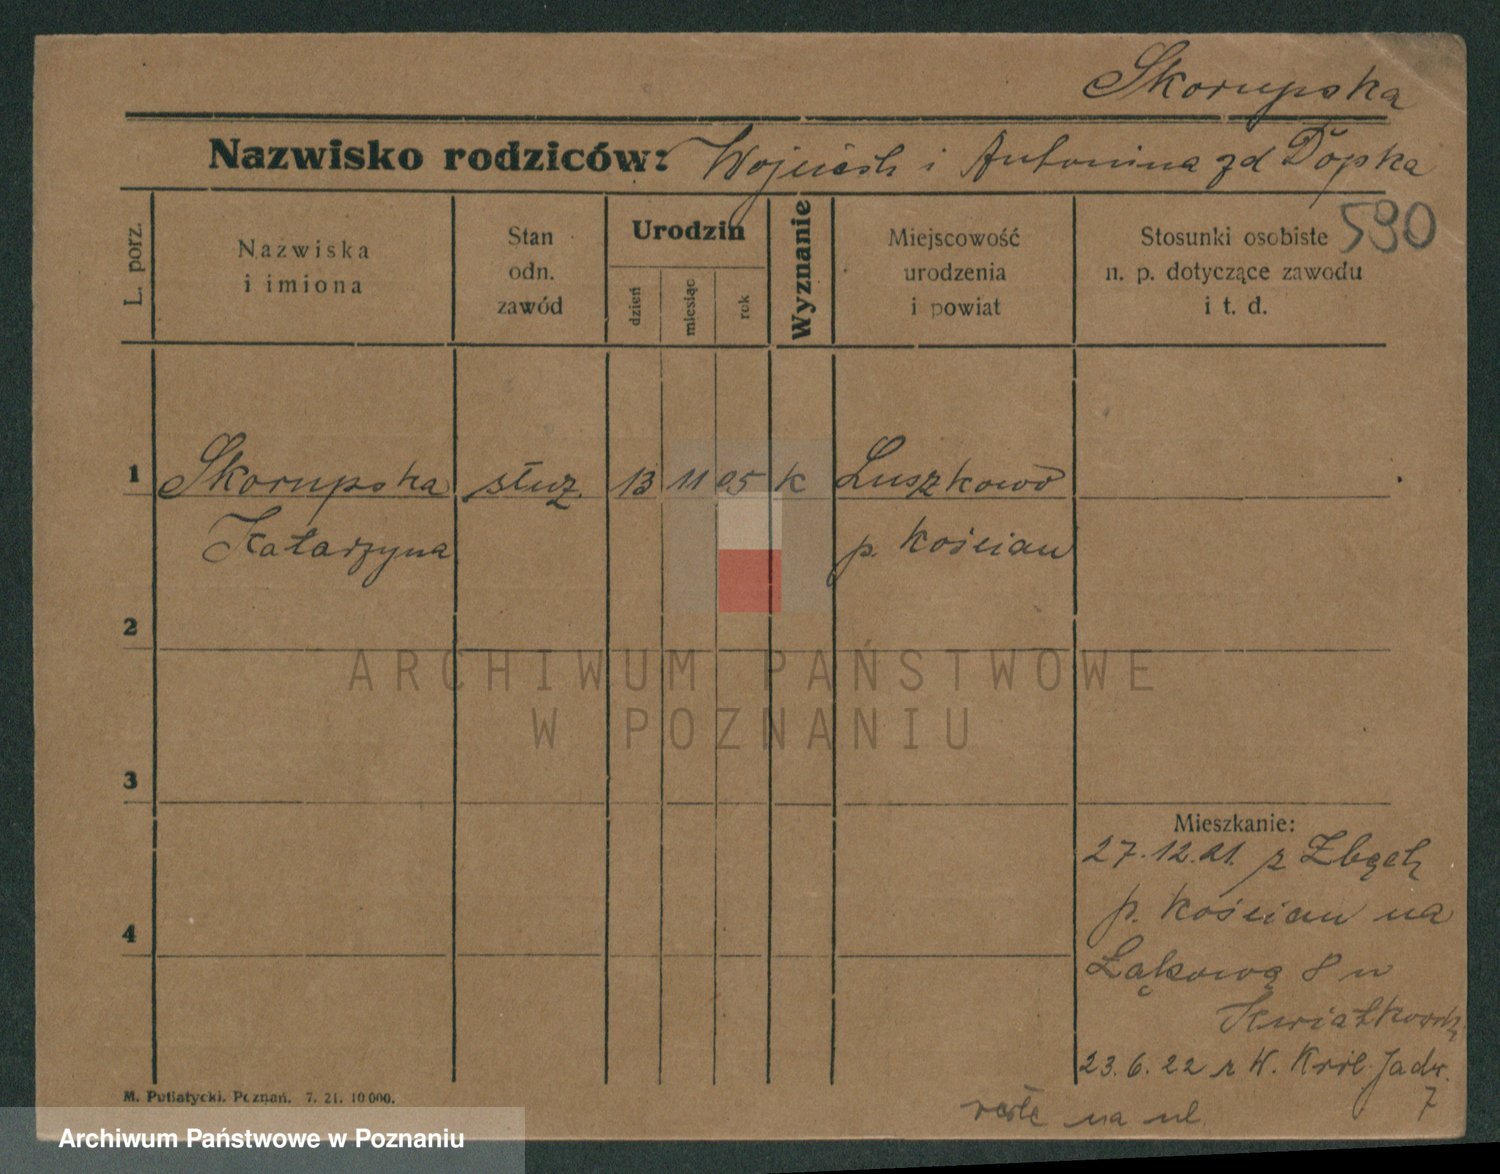 Skorupska
Nazwisko rodziców: Wojciech i Antonina zd Dopka
590
L. porz.
Nazwiska
i imiona
Stan
odn.
zawód
Urodzin
dzień
miesiąc
rok
Wyznanie
Miejscowość
urodzenia
i powiat
Stosunki osobiste
n. p. dotyczące zawodu
i t. d.
1 Skorupska służ. 13 11 05 k Luszkowo
Katarzyna p. Kościan
2
3
4
Mieszkanie:
27.12.21. z Zbęch
p. Kościan na
Łąkową 8 u
23.6.22 z W. Król. Jadw.
7
na ul
M. Putiatycki, Poznań. 7. 21. 10 000.
ARCHIWUM PAŃSTWOWE
W POZNANIU
Archiwum Państwowe w Poznaniu